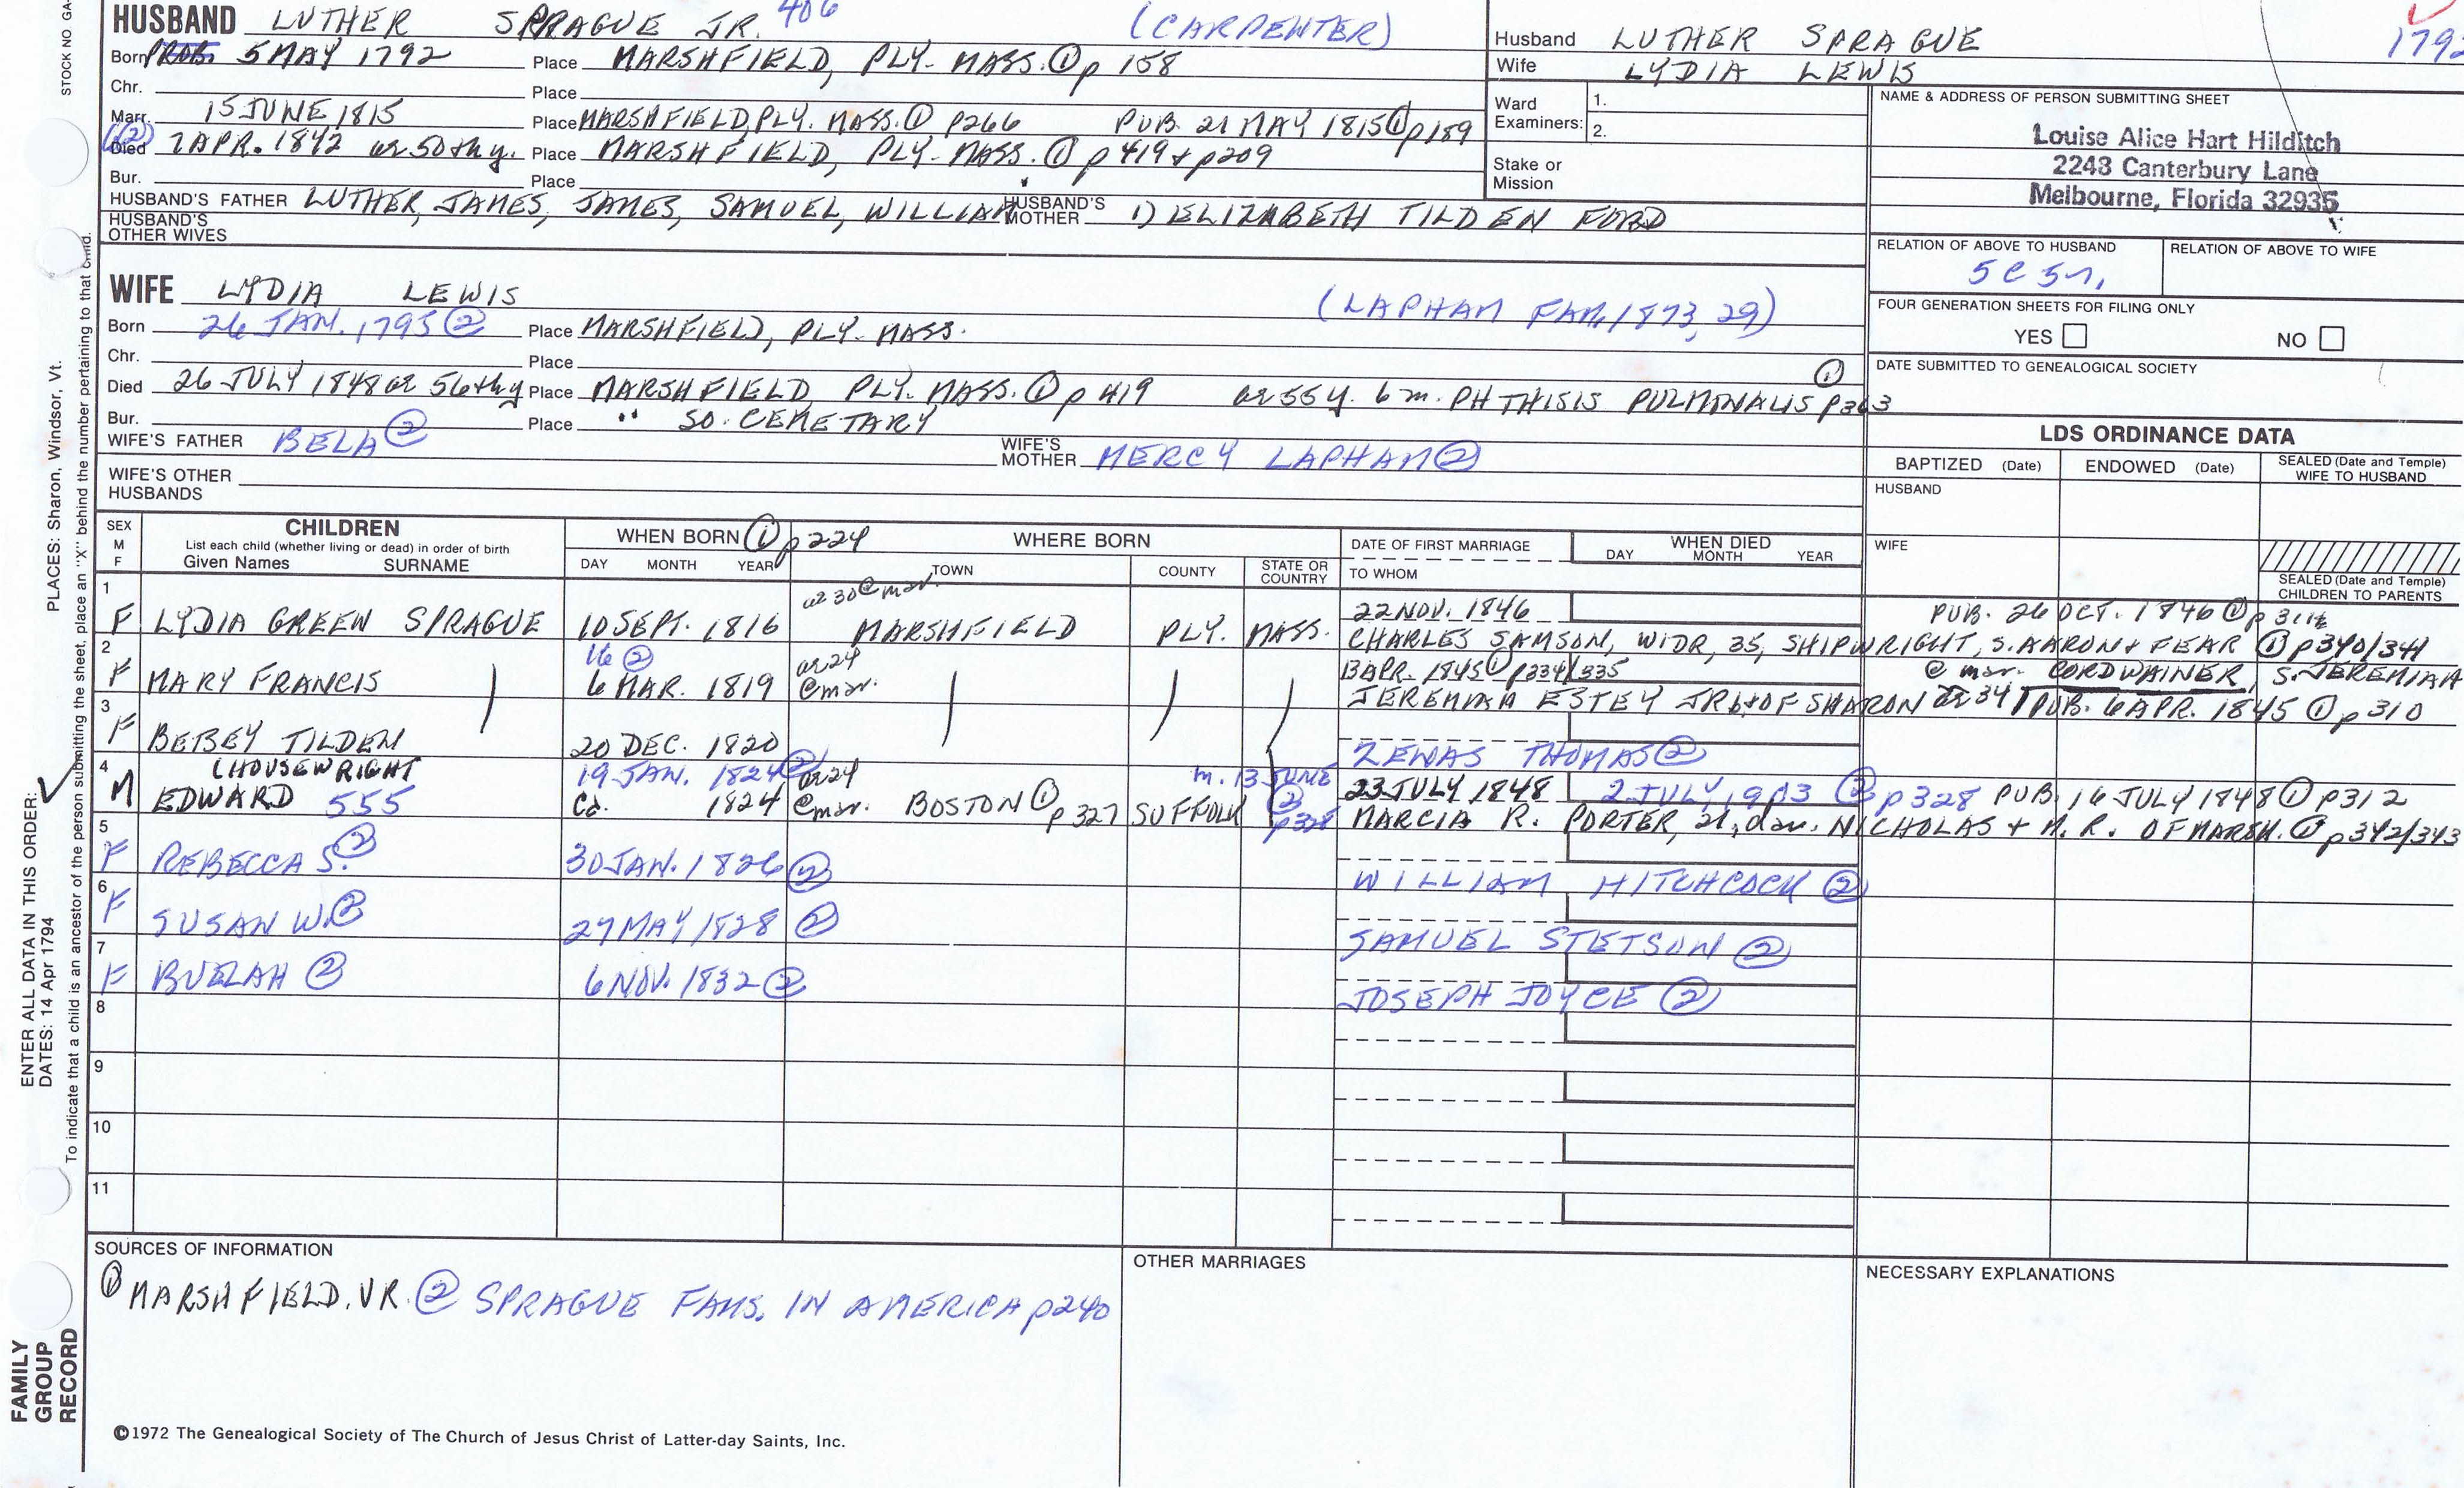 HUSBAND LUTHER SPRAGUE JR. 406 (CARPENTER)
Born PROB. 5 MAY 1792 Place MARSHFIELD, PLY. MASS. ① p 158
Chr. Place
Marr. 15 JUNE 1815 Place MARSHFIELD, PLY. MASS. ① p266 PUB. 21 MAY 1815 ① p189
Died 7 APR. 1842 ae 50th y. Place MARSHFIELD, PLY. MASS. ① p 419 + p209
Bur. Place
HUSBAND'S FATHER LUTHER, JAMES, JAMES, SAMUEL, WILLIAM HUSBAND'S MOTHER 1) ELIZABETH TILDEN FORD
HUSBAND'S OTHER WIVES
Husband LUTHER SPRAGUE
1792
Wife LYDIA LEWIS
Ward Examiners: 1.
2.
Stake or Mission
NAME & ADDRESS OF PERSON SUBMITTING SHEET
Louise Alice Hart Hilditch
2243 Canterbury Lane
Melbourne, Florida 32935
RELATION OF ABOVE TO HUSBAND RELATION OF ABOVE TO WIFE
5C 5r,
FOUR GENERATION SHEETS FOR FILING ONLY
YES NO
DATE SUBMITTED TO GENEALOGICAL SOCIETY
WIFE LYDIA LEWIS (LAPHAM FAM, 1873, 29)
Born 26 JAN. 1793 ② Place MARSHFIELD, PLY. MASS.
Chr. Place
Died 26 JULY 1848 ae 56th y Place MARSHFIELD PLY. MASS. ① p 419 ae 55 y. 6 m. PHTHISIS PULMONALIS ① p363
Bur. Place " SO. CEMETARY
WIFE'S FATHER BELA ② WIFE'S MOTHER MERCY LAPHAM ②
WIFE'S OTHER HUSBANDS
LDS ORDINANCE DATA
BAPTIZED (Date) ENDOWED (Date) SEALED (Date and Temple) WIFE TO HUSBAND
HUSBAND
WIFE
SEALED (Date and Temple) CHILDREN TO PARENTS
SEX M F CHILDREN
List each child (whether living or dead) in order of birth
Given Names SURNAME
WHEN BORN ① p224
DAY MONTH YEAR
WHERE BORN
TOWN COUNTY STATE OR COUNTRY
DATE OF FIRST MARRIAGE
TO WHOM
WHEN DIED
DAY MONTH YEAR
1 ae 30 @ mar. 22 NOV. 1846 PUB. 26 OCT. 1846 ① p 311
F LYDIA GREEN SPRAGUE 10 SEPT. 1816 MARSHFIELD PLY. MASS. CHARLES SAMSON, WIDR, 35, SHIPWRIGHT, S. AARON + FEAR ① p340/341
2 16 ② ae 24 @ mar. 13 APR. 1845 ① p334/335 @ mar. CORDWAINER, S. JEREMIAH
F MARY FRANCIS 6 MAR. 1819 JEREMIAH ESTEY JR OF SHARON ae 34 PUB. 6 APR. 1845 ① p 310
3
F BETSEY TILDEN 20 DEC. 1820 ZENAS THOMAS ②
4 (HOUSEWRIGHT 19 JAN. 1824 ② ae 24 @ mar. m. 13 JUNE ② p328 23 JULY 1848 2 JULY, 1903 ② p328 PUB. 16 JULY 1848 ① p312
M EDWARD 555 Cd. 1824 BOSTON ① p327 SUFFOLK MARCIA R. PORTER, 21, dau. NICHOLAS + M. R. OF MARSH. ① p342/343
5
F REBECCA S. ② 30 JAN. 1826 ② WILLIAM HITCHCOCK ②
6
F SUSAN W. ② 27 MAY 1828 ② SAMUEL STETSON ②
7
F BUELAH ② 6 NOV. 1832 ② JOSEPH JOYCE ②
8
9
10
11
SOURCES OF INFORMATION
① MARSHFIELD. VR. ② SPRAGUE FAMS. IN AMERICA p240
OTHER MARRIAGES
NECESSARY EXPLANATIONS
©1972 The Genealogical Society of The Church of Jesus Christ of Latter-day Saints, Inc.
STOCK NO. GA-
PLACES: Sharon, Windsor, Vt.
To indicate that a child is an ancestor of the person submitting the sheet, place an "X" behind the number pertaining to that child.
ENTER ALL DATA IN THIS ORDER:
DATES: 14 Apr 1794
FAMILY
GROUP
RECORD